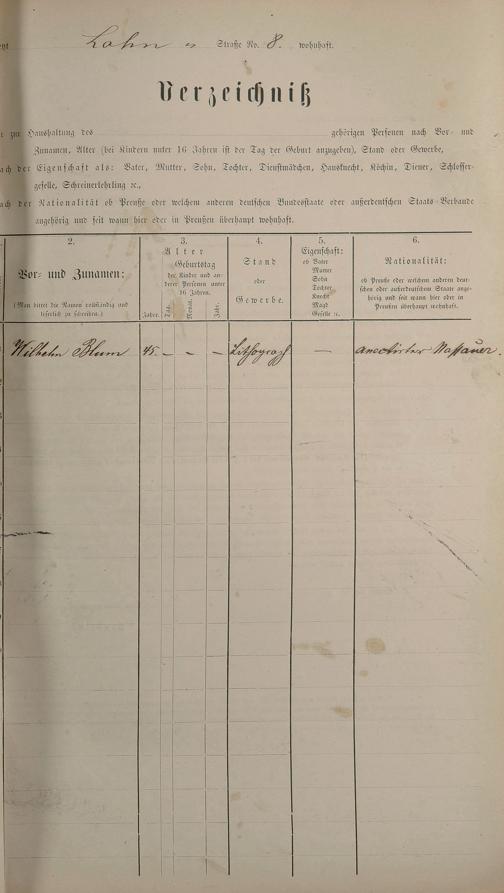 Lahn Straße No. 8. wohnhaft.
Verzeichniß
zur Haushaltung des gehörigen Personen nach Vor- und
Zunamen, Alter (bei Kindern unter 16 Jahren ist der Tag der Geburt anzugeben), Stand oder Gewerbe,
nach der Eigenschaft als: Vater, Mutter, Sohn, Tochter, Dienstmädchen, Hausknecht, Köchin, Diener, Schlosser-
geselle, Schreinerlehrling ꝛc.,
nach der Nationalität ob Preuße oder welchem anderen deutschen Bundesstaate oder außerdeutschem Staats-Verbande
angehörig und seit wann hier oder in Preußen überhaupt wohnhaft.
2.
Vor- und Zunamen:
(Man bittet die Namen vollständig und
leserlich zu schreiben.)
3.
Alter
Geburtstag
der Kinder und an-
derer Personen unter
16 Jahren.
Jahre.
Tag.
Monat.
Jahr.
4.
Stand
oder
Gewerbe.
5.
Eigenschaft:
ob Vater
Mutter
Sohn
Tochter
Knecht
Magd
Geselle ꝛc.
6.
Nationalität:
ob Preuße oder welchem anderen deut-
schen oder außerdeutschem Staate ange-
hörig und seit wann hier oder in
Preußen überhaupt wohnhaft.
Wilhelm Blum 45. – – – Lithograph — annectirter Nassauer.